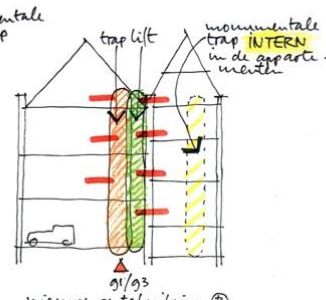 ntale
p
trap lift
monumentale
trap INTERN
in de apparte-
menten
g1/g3